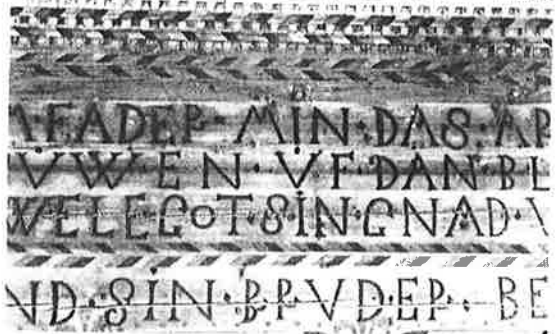 FADER · MIN · DAS · AR
VWEN · VF · DAN · BL
WELEGOT · SIN · GNAD ·
ND · SIN · BRVDER · BE